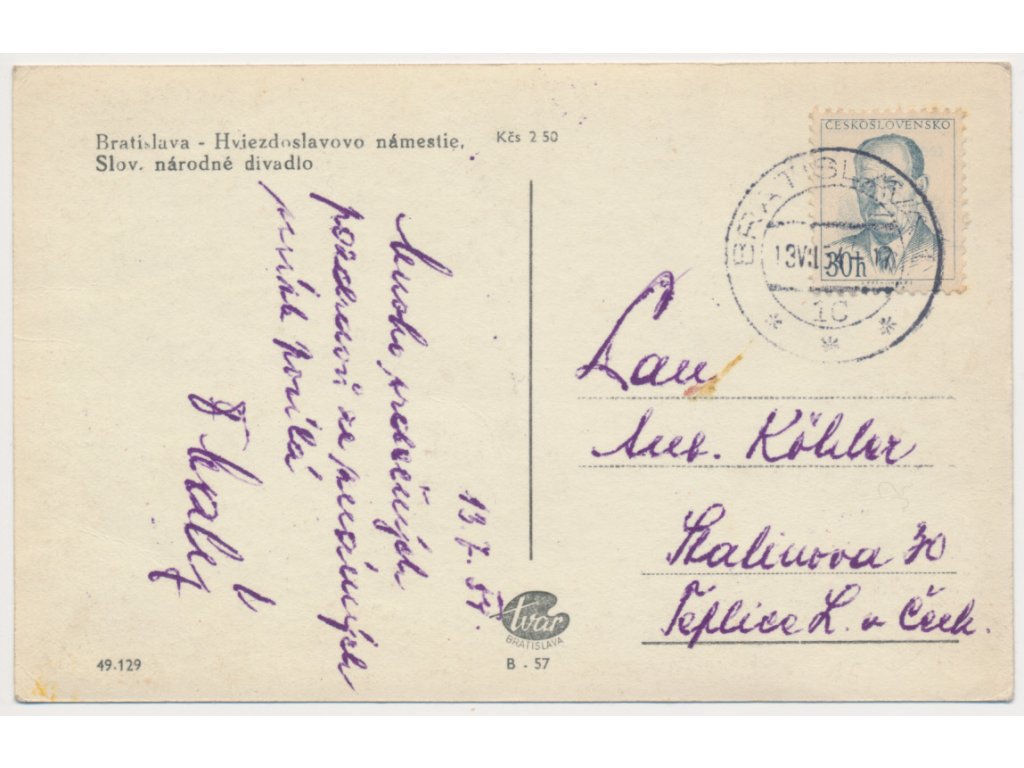 Bratislava - Hviezdoslavovo námestie,
Slov. národné divadlo
Kčs 2 50
ČESKOSLOVENSKO
30h
BRATISLAVA
13VII54
1c
13. 7. 54.
Mnoho srdečných
pozdravů ze
posílá
Pan
Ant. Köhler
Stalinova 30
Teplice L. v Čech.
tvar
BRATISLAVA
49.129
B - 57